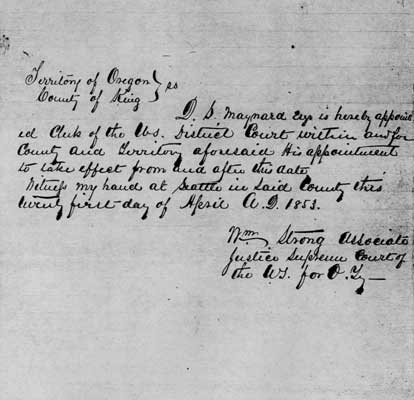 Territory of Oregon } ss
County of King
D. S. Maynard Esq is hereby appoint
ed Clerk of the U.S. District Court within and for
County and Territory aforesaid His appointment
to take effect from and after this date
Witness my hand at Seattle in Said County this
twenty first day of April A.D. 1853.
Wm Strong Associate
Justice Supreme Court of
the US. for O. Ty